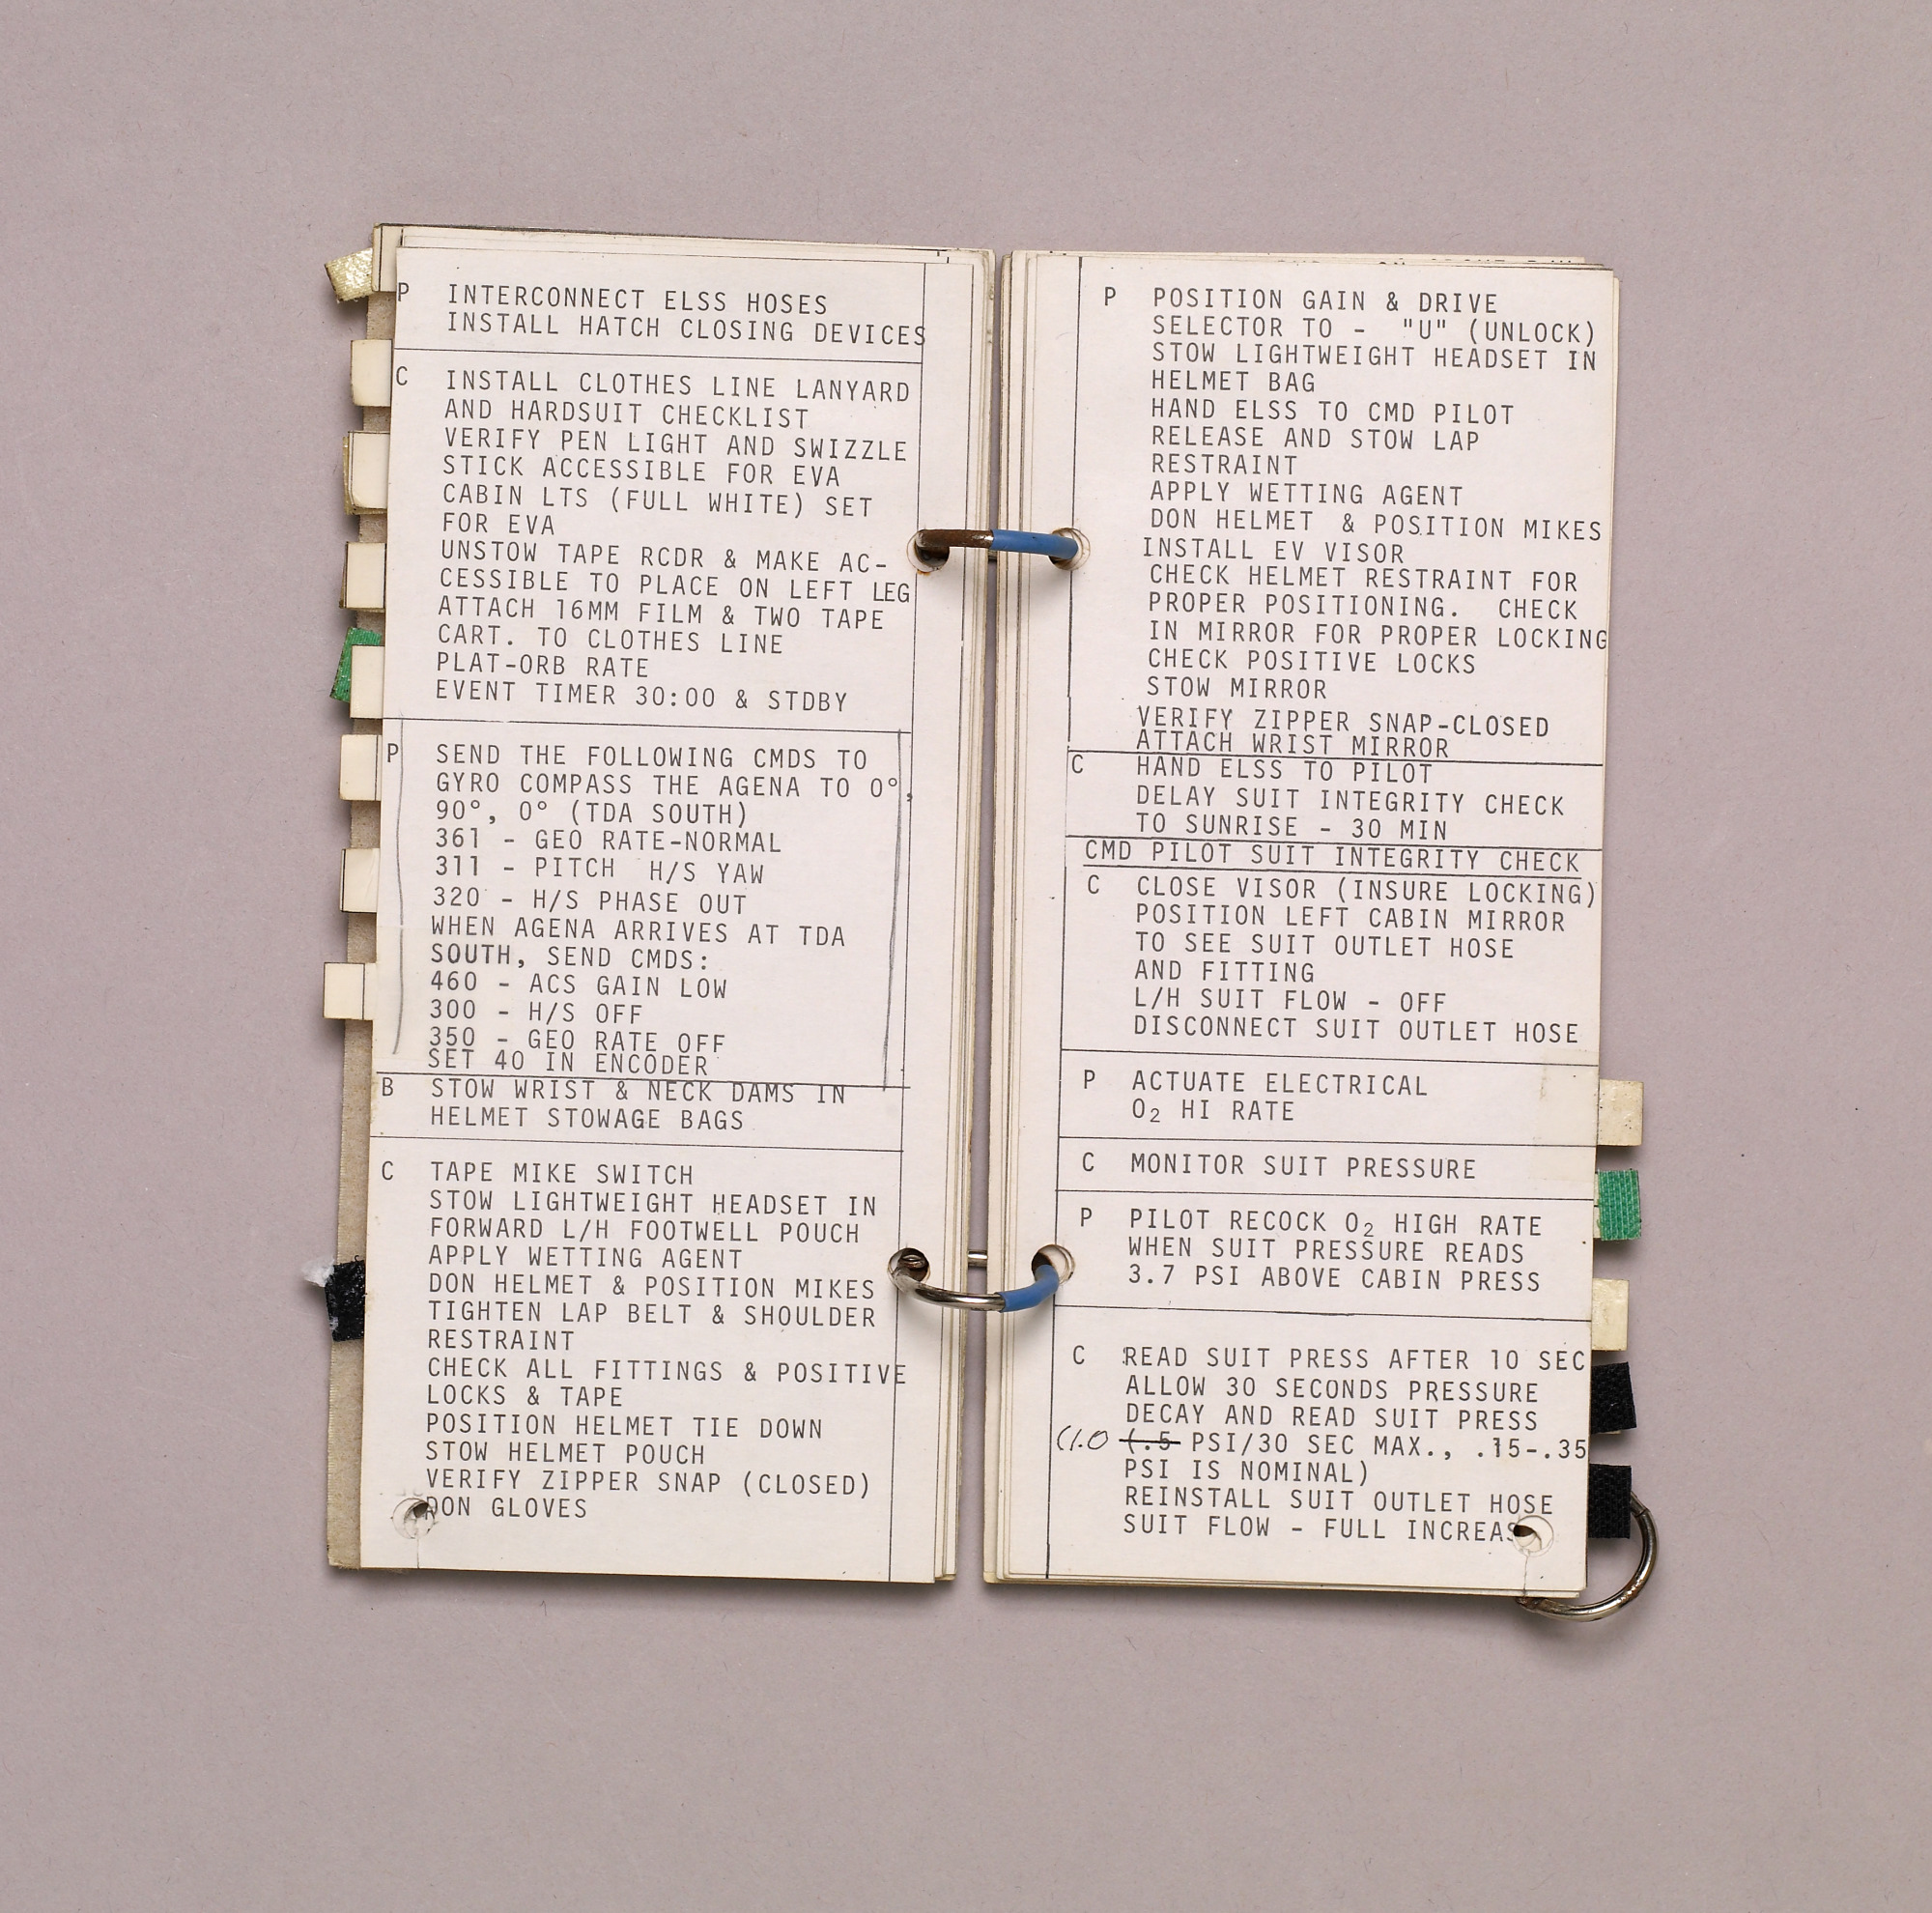 P INTERCONNECT ELSS HOSES
INSTALL HATCH CLOSING DEVICES
C INSTALL CLOTHES LINE LANYARD
AND HARDSUIT CHECKLIST
VERIFY PEN LIGHT AND SWIZZLE
STICK ACCESSIBLE FOR EVA
CABIN LTS (FULL WHITE) SET
FOR EVA
UNSTOW TAPE RCDR & MAKE AC-
CESSIBLE TO PLACE ON LEFT LEG
ATTACH 16MM FILM & TWO TAPE
CART. TO CLOTHES LINE
PLAT-ORB RATE
EVENT TIMER 30:00 & STDBY
P SEND THE FOLLOWING CMDS TO
GYRO COMPASS THE AGENA TO 0°,
90°, 0° (TDA SOUTH)
361 - GEO RATE-NORMAL
311 - PITCH H/S YAW
320 - H/S PHASE OUT
WHEN AGENA ARRIVES AT TDA
SOUTH, SEND CMDS:
460 - ACS GAIN LOW
300 - H/S OFF
350 - GEO RATE OFF
SET 40 IN ENCODER
B STOW WRIST & NECK DAMS IN
HELMET STOWAGE BAGS
C TAPE MIKE SWITCH
STOW LIGHTWEIGHT HEADSET IN
FORWARD L/H FOOTWELL POUCH
APPLY WETTING AGENT
DON HELMET & POSITION MIKES
TIGHTEN LAP BELT & SHOULDER
RESTRAINT
CHECK ALL FITTINGS & POSITIVE
LOCKS & TAPE
POSITION HELMET TIE DOWN
STOW HELMET POUCH
VERIFY ZIPPER SNAP (CLOSED)
DON GLOVES
P POSITION GAIN & DRIVE
SELECTOR TO - "U" (UNLOCK)
STOW LIGHTWEIGHT HEADSET IN
HELMET BAG
HAND ELSS TO CMD PILOT
RELEASE AND STOW LAP
RESTRAINT
APPLY WETTING AGENT
DON HELMET & POSITION MIKES
INSTALL EV VISOR
CHECK HELMET RESTRAINT FOR
PROPER POSITIONING. CHECK
IN MIRROR FOR PROPER LOCKING
CHECK POSITIVE LOCKS
STOW MIRROR
VERIFY ZIPPER SNAP-CLOSED
ATTACH WRIST MIRROR
C HAND ELSS TO PILOT
DELAY SUIT INTEGRITY CHECK
TO SUNRISE - 30 MIN
CMD PILOT SUIT INTEGRITY CHECK
C CLOSE VISOR (INSURE LOCKING)
POSITION LEFT CABIN MIRROR
TO SEE SUIT OUTLET HOSE
AND FITTING
L/H SUIT FLOW - OFF
DISCONNECT SUIT OUTLET HOSE
P ACTUATE ELECTRICAL
O₂ HI RATE
C MONITOR SUIT PRESSURE
P PILOT RECOCK O₂ HIGH RATE
WHEN SUIT PRESSURE READS
3.7 PSI ABOVE CABIN PRESS
C READ SUIT PRESS AFTER 10 SEC
ALLOW 30 SECONDS PRESSURE
DECAY AND READ SUIT PRESS
(1.0 (.5 PSI/30 SEC MAX., .15-.35
PSI IS NOMINAL)
REINSTALL SUIT OUTLET HOSE
SUIT FLOW - FULL INCREAS